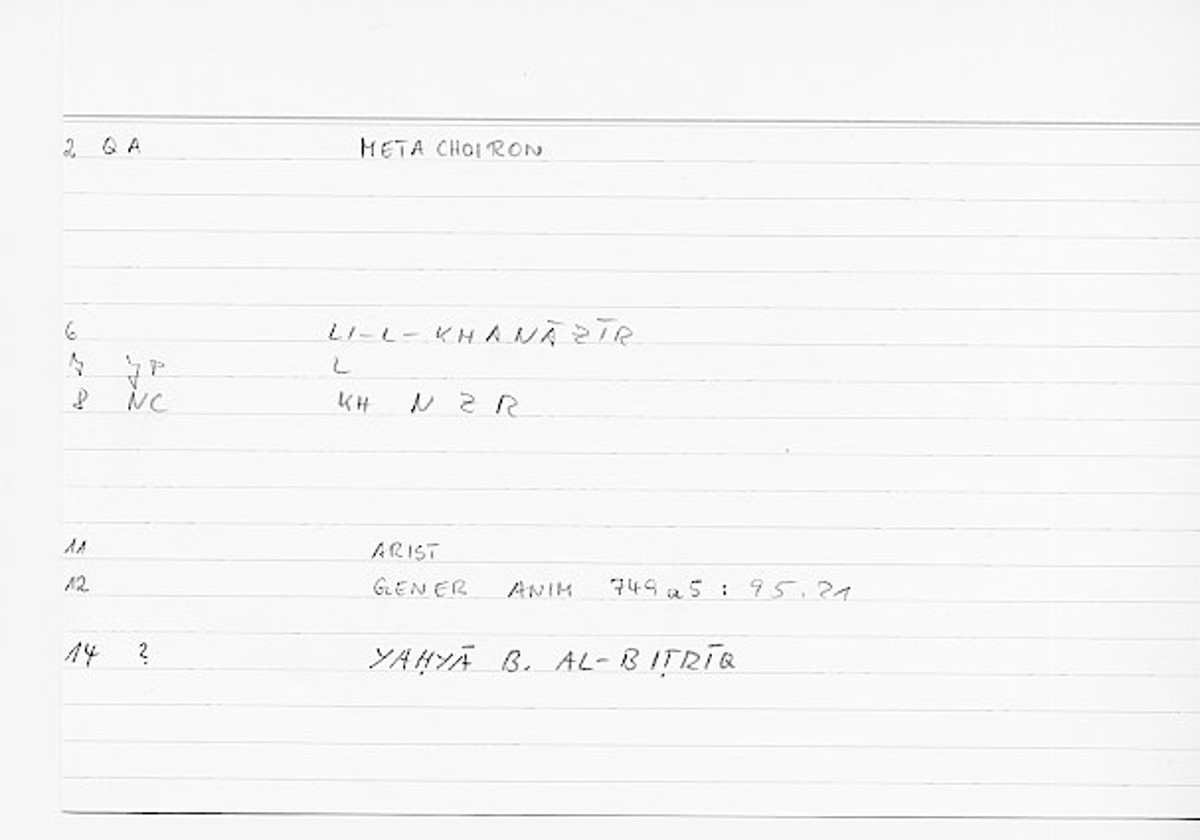 2 QA METACHOIRON
6 LI-L-KHANĀZĪR
7 JP L
8 NC KH N Z R
11 ARIST
12 GENER ANIM 749a5 : 95.21
14 ? YAḤYĀ B. AL-BIṬRĪQ